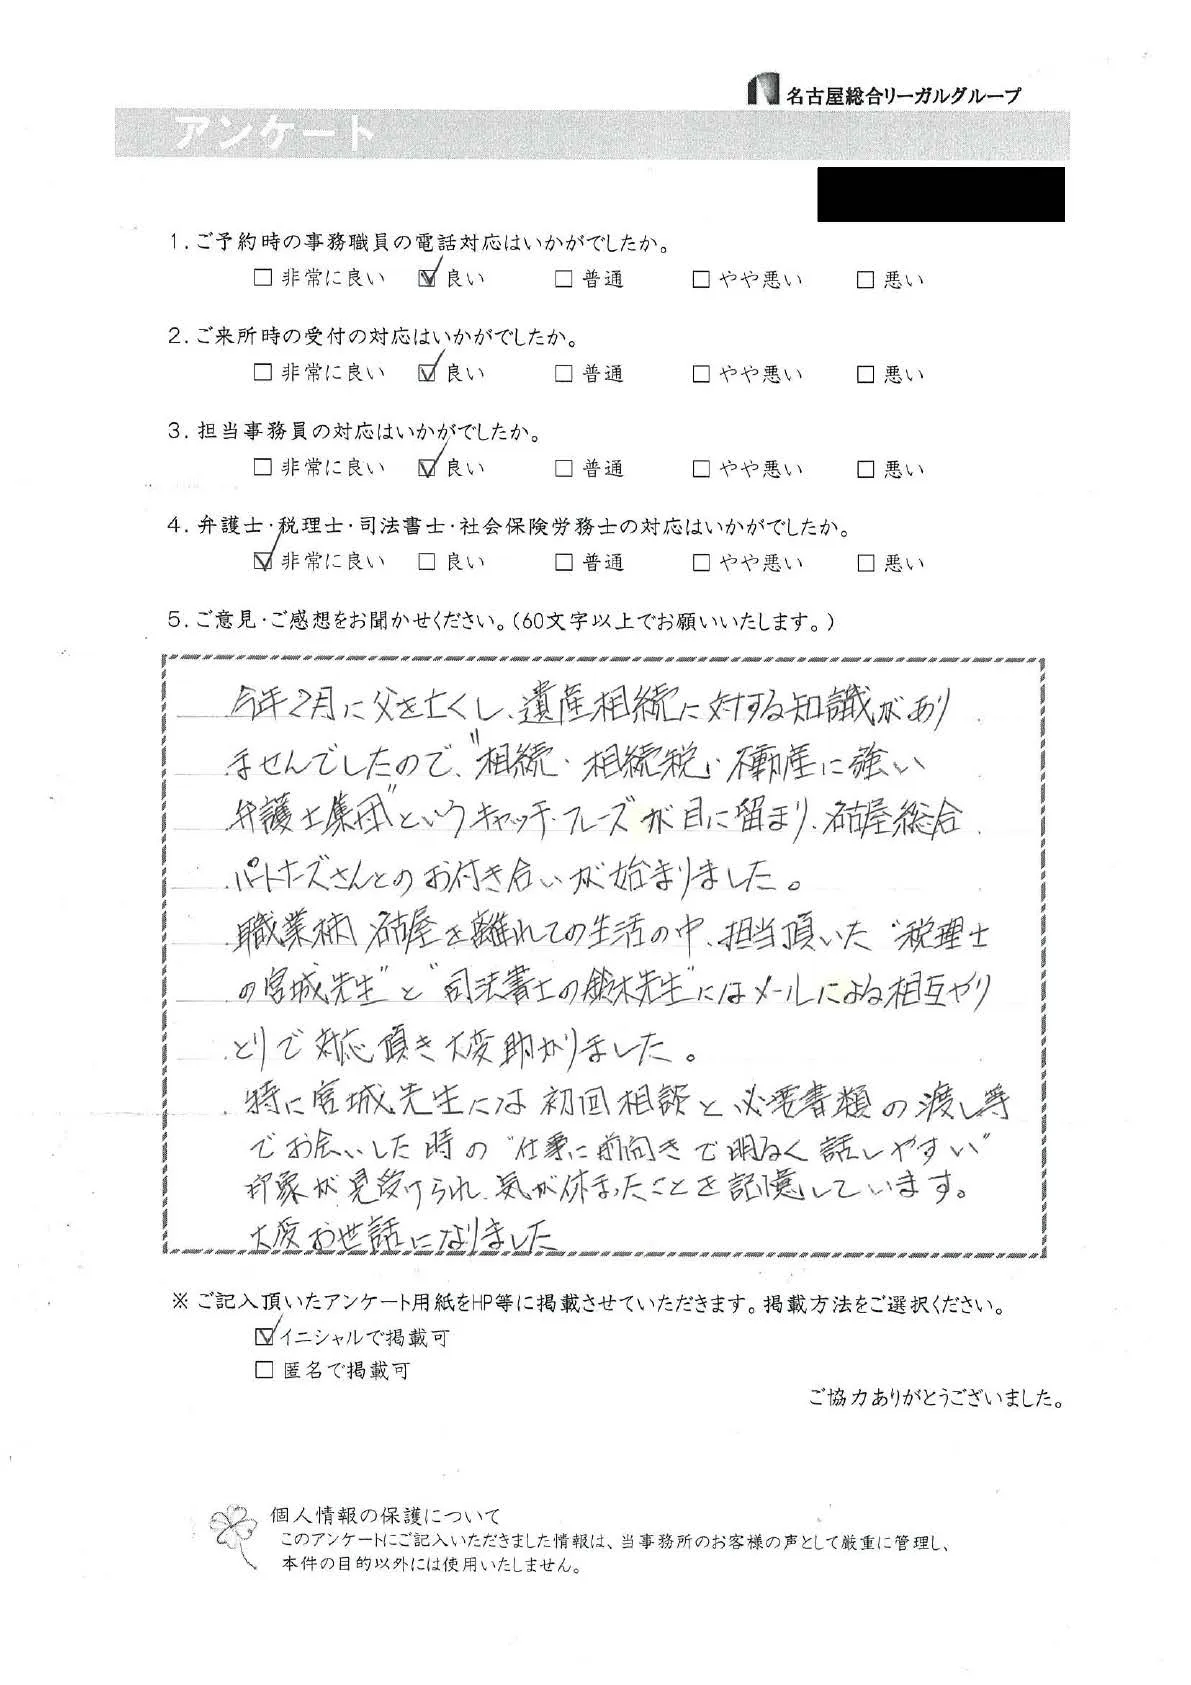 名古屋総合リーガルグループ
アンケート
1. ご予約時の事務職員の電話対応はいかがでしたか。
□ 非常に良い ☑ 良い □ 普通 □ やや悪い □ 悪い
2. ご来所時の受付の対応はいかがでしたか。
□ 非常に良い ☑ 良い □ 普通 □ やや悪い □ 悪い
3. 担当事務員の対応はいかがでしたか。
□ 非常に良い ☑ 良い □ 普通 □ やや悪い □ 悪い
4. 弁護士・税理士・司法書士・社会保険労務士の対応はいかがでしたか。
☑ 非常に良い □ 良い □ 普通 □ やや悪い □ 悪い
5. ご意見・ご感想をお聞かせください。(60文字以上でお願いいたします。)
今年2月に父を亡くし、遺産相続に対する知識があり
ませんでしたので、"相続・相続税・不動産に強い
弁護士集団"というキャッチ・フレーズが目に留まり、名古屋総合
パートナーズさんとのお付き合いが始まりました。
職業柄 名古屋を離れての生活の中、担当頂いた"税理士
の宮城先生"と"司法書士の鈴木先生"にはメールによる相互やり
とりで対応頂き大変助かりました。
特に宮城先生には初回相談と必要書類の渡し等
でお会いした時の"仕事に前向きで明るく話しやすい"
印象が見受けられ、気が休まったことを記憶しています。
大変お世話になりました
※ ご記入頂いたアンケート用紙をHP等に掲載させていただきます。掲載方法をご選択ください。
☑ イニシャルで掲載可
□ 匿名で掲載可
ご協力ありがとうございました。
個人情報の保護について
このアンケートにご記入いただきました情報は、当事務所のお客様の声として厳重に管理し、
本件の目的以外には使用いたしません。